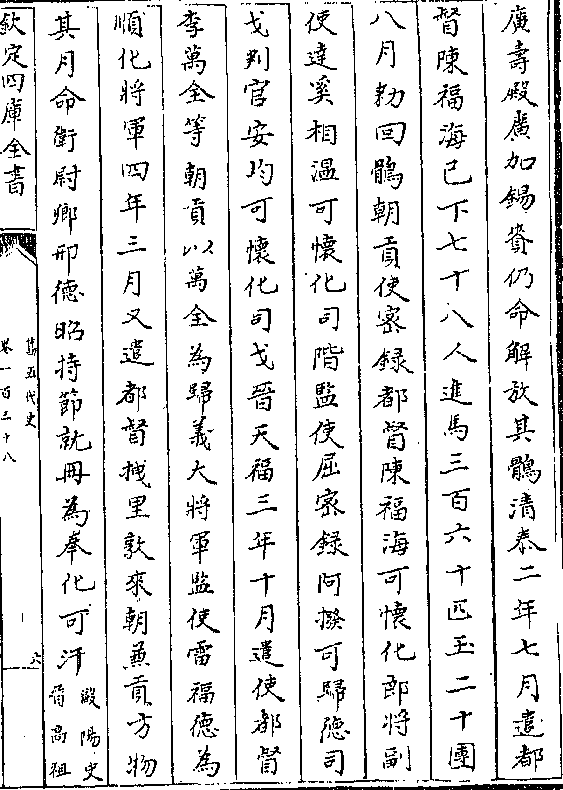 廣壽殿厲加錫賚仍命解放其鶻清泰二年七月遣都
督陳福海已下七十八人進馬三百六十匹玉二十團
八月勑回鶻朝貢使宻録都督陳福海可懷化郎將副
使達奚相温可懐化司階監使屈宻録阿撥可歸徳司
戈判官安均可懐化司戈晉天福三年十月遣使都督
李萬全等朝貢以萬全為歸義大將軍監使雷福徳為
順化將軍四年三月又遣都督拽里敦來朝兼貢方物
其月命衛尉卿邢徳昭持節就冊為奉化可汗
歐陽史
晉高祖
欽定四庫全書
舊五代史
卷一百三十八
六